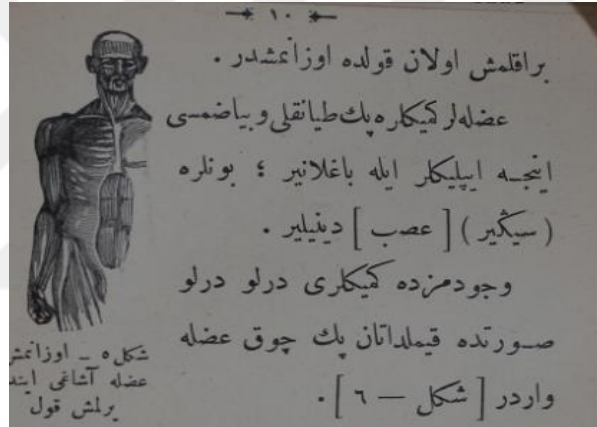 ١٠
براقلمش اولان قولده اوزانمشدر .
عضله‌لر كميكلره پك طيانقلى و بياضمسى
اينجه ايپليكلر ايله باغلانير ؛ بونلره
( سيڭير ) [ عصب ] دينيلير .
وجودمزده كميكلرى درلو درلو
صورتده قيملداتان پك چوق عضله
واردر [ شكل — ٦ ] .
شكل ٥ — اوزانمش
عضله آشاغى ايند
يرلمش قول